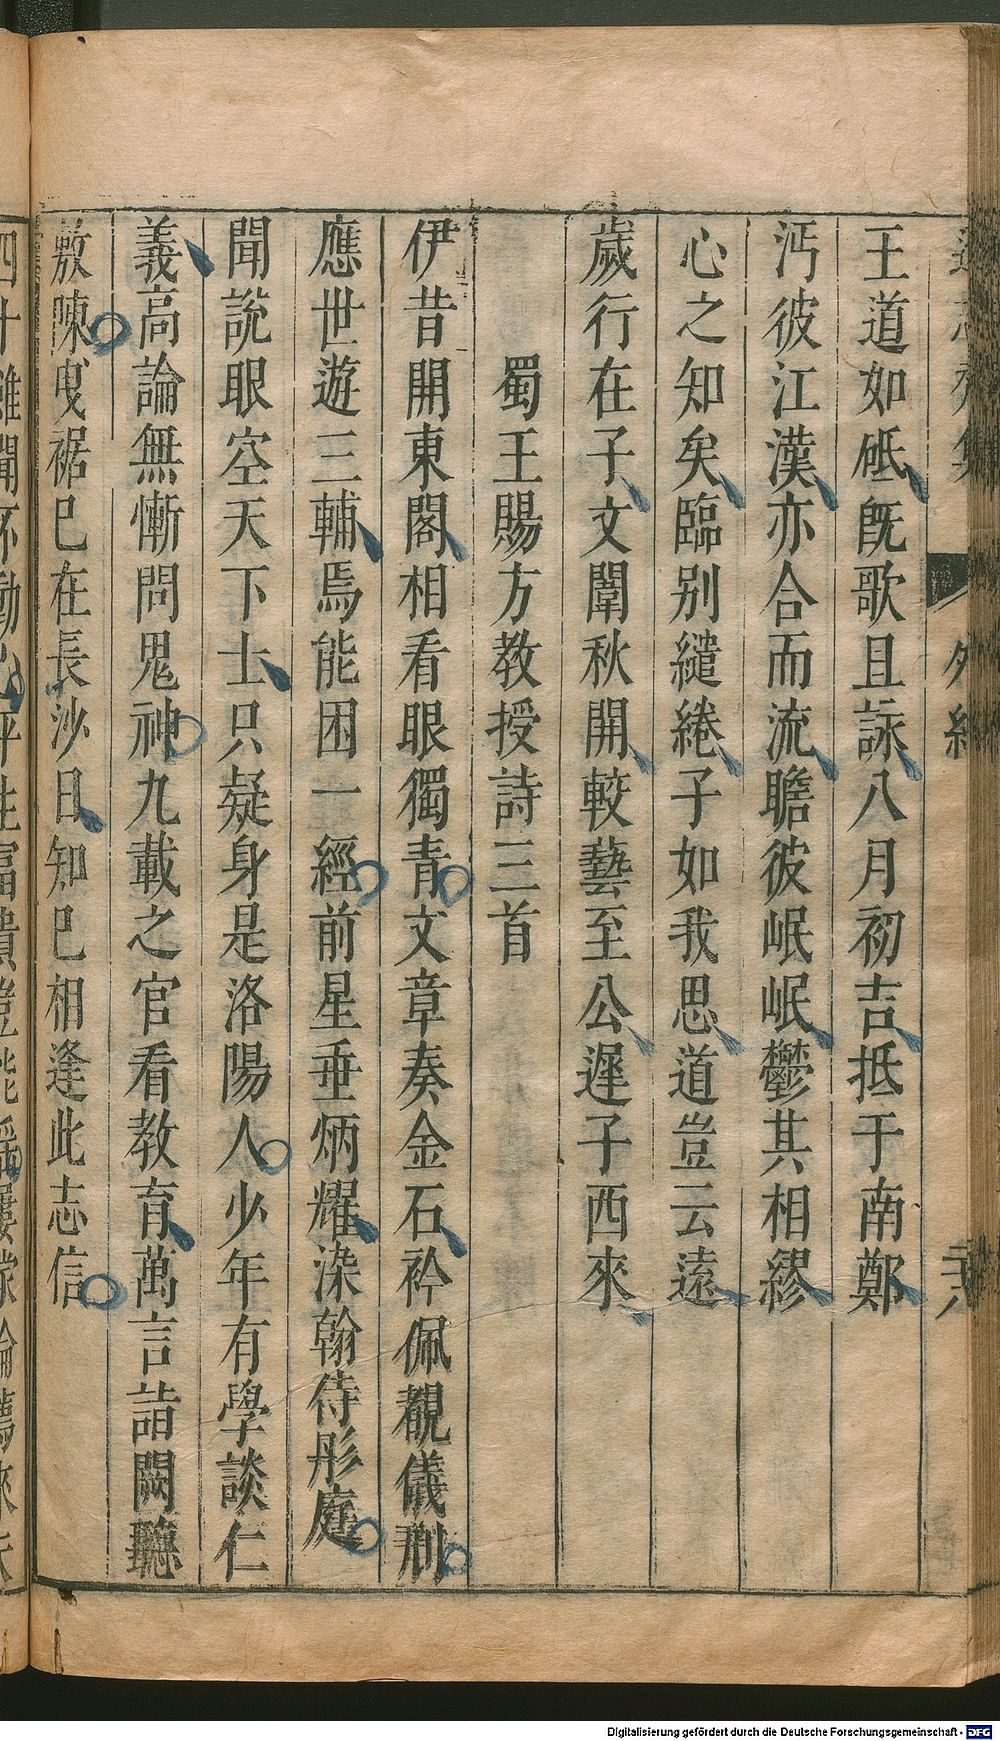 王道如砥旣歌且詠八月初吉抵于南鄭
沔彼江漢亦合而流瞻彼岷岷鬱其相繆
心之知矣臨别繾綣子如我思道豈云遠
歲行在子文闈秋開較藝至公遲子西來
蜀王賜方教授詩三首
伊昔開東閣相看眼獨青文章奏金石衿佩覩儀刑
應世遊三輔焉能困一經前星垂炳耀染翰侍彤庭
聞說眼空天下士只疑身是洛陽人少年有學談仁
義高論無慚問鬼神九載之官看教育萬言詣闕聽
敷陳曳裾已在長沙日知已相逢此志信
外紀
二十八
Digitalisierung gefördert durch die Deutsche Forschungsgemeinschaft - DFG